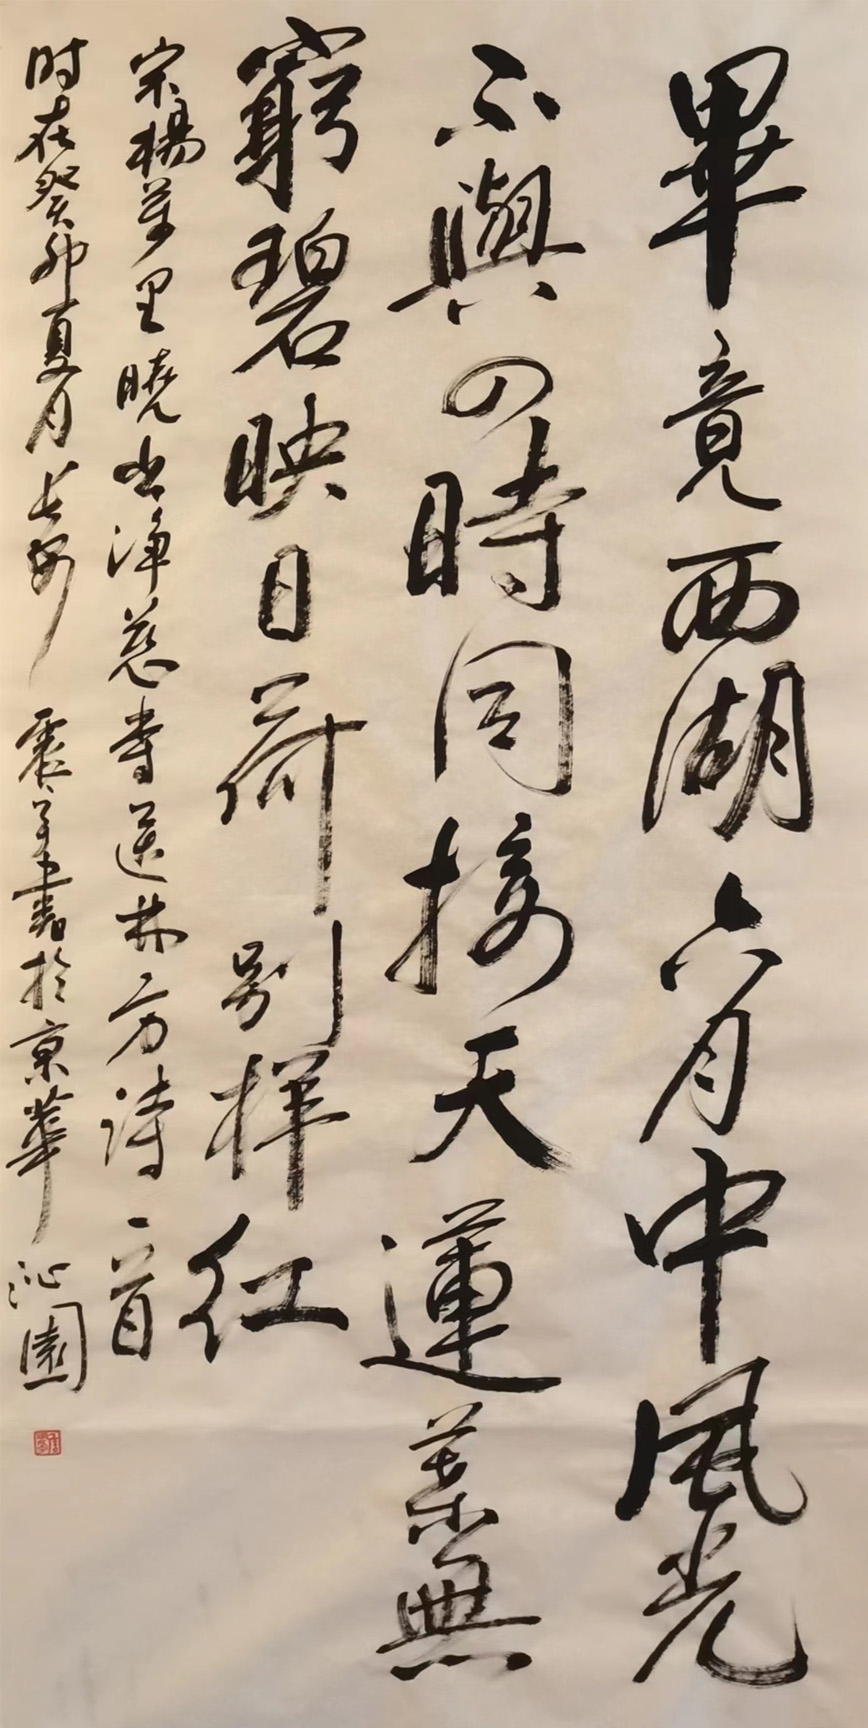 畢竟西湖六月中風光
不與四時同接天蓮葉無
窮碧映日荷別樣紅
宋楊萬里曉出淨慈寺送林子方詩一首
时在癸卯夏月長安震羊書於京華沁園